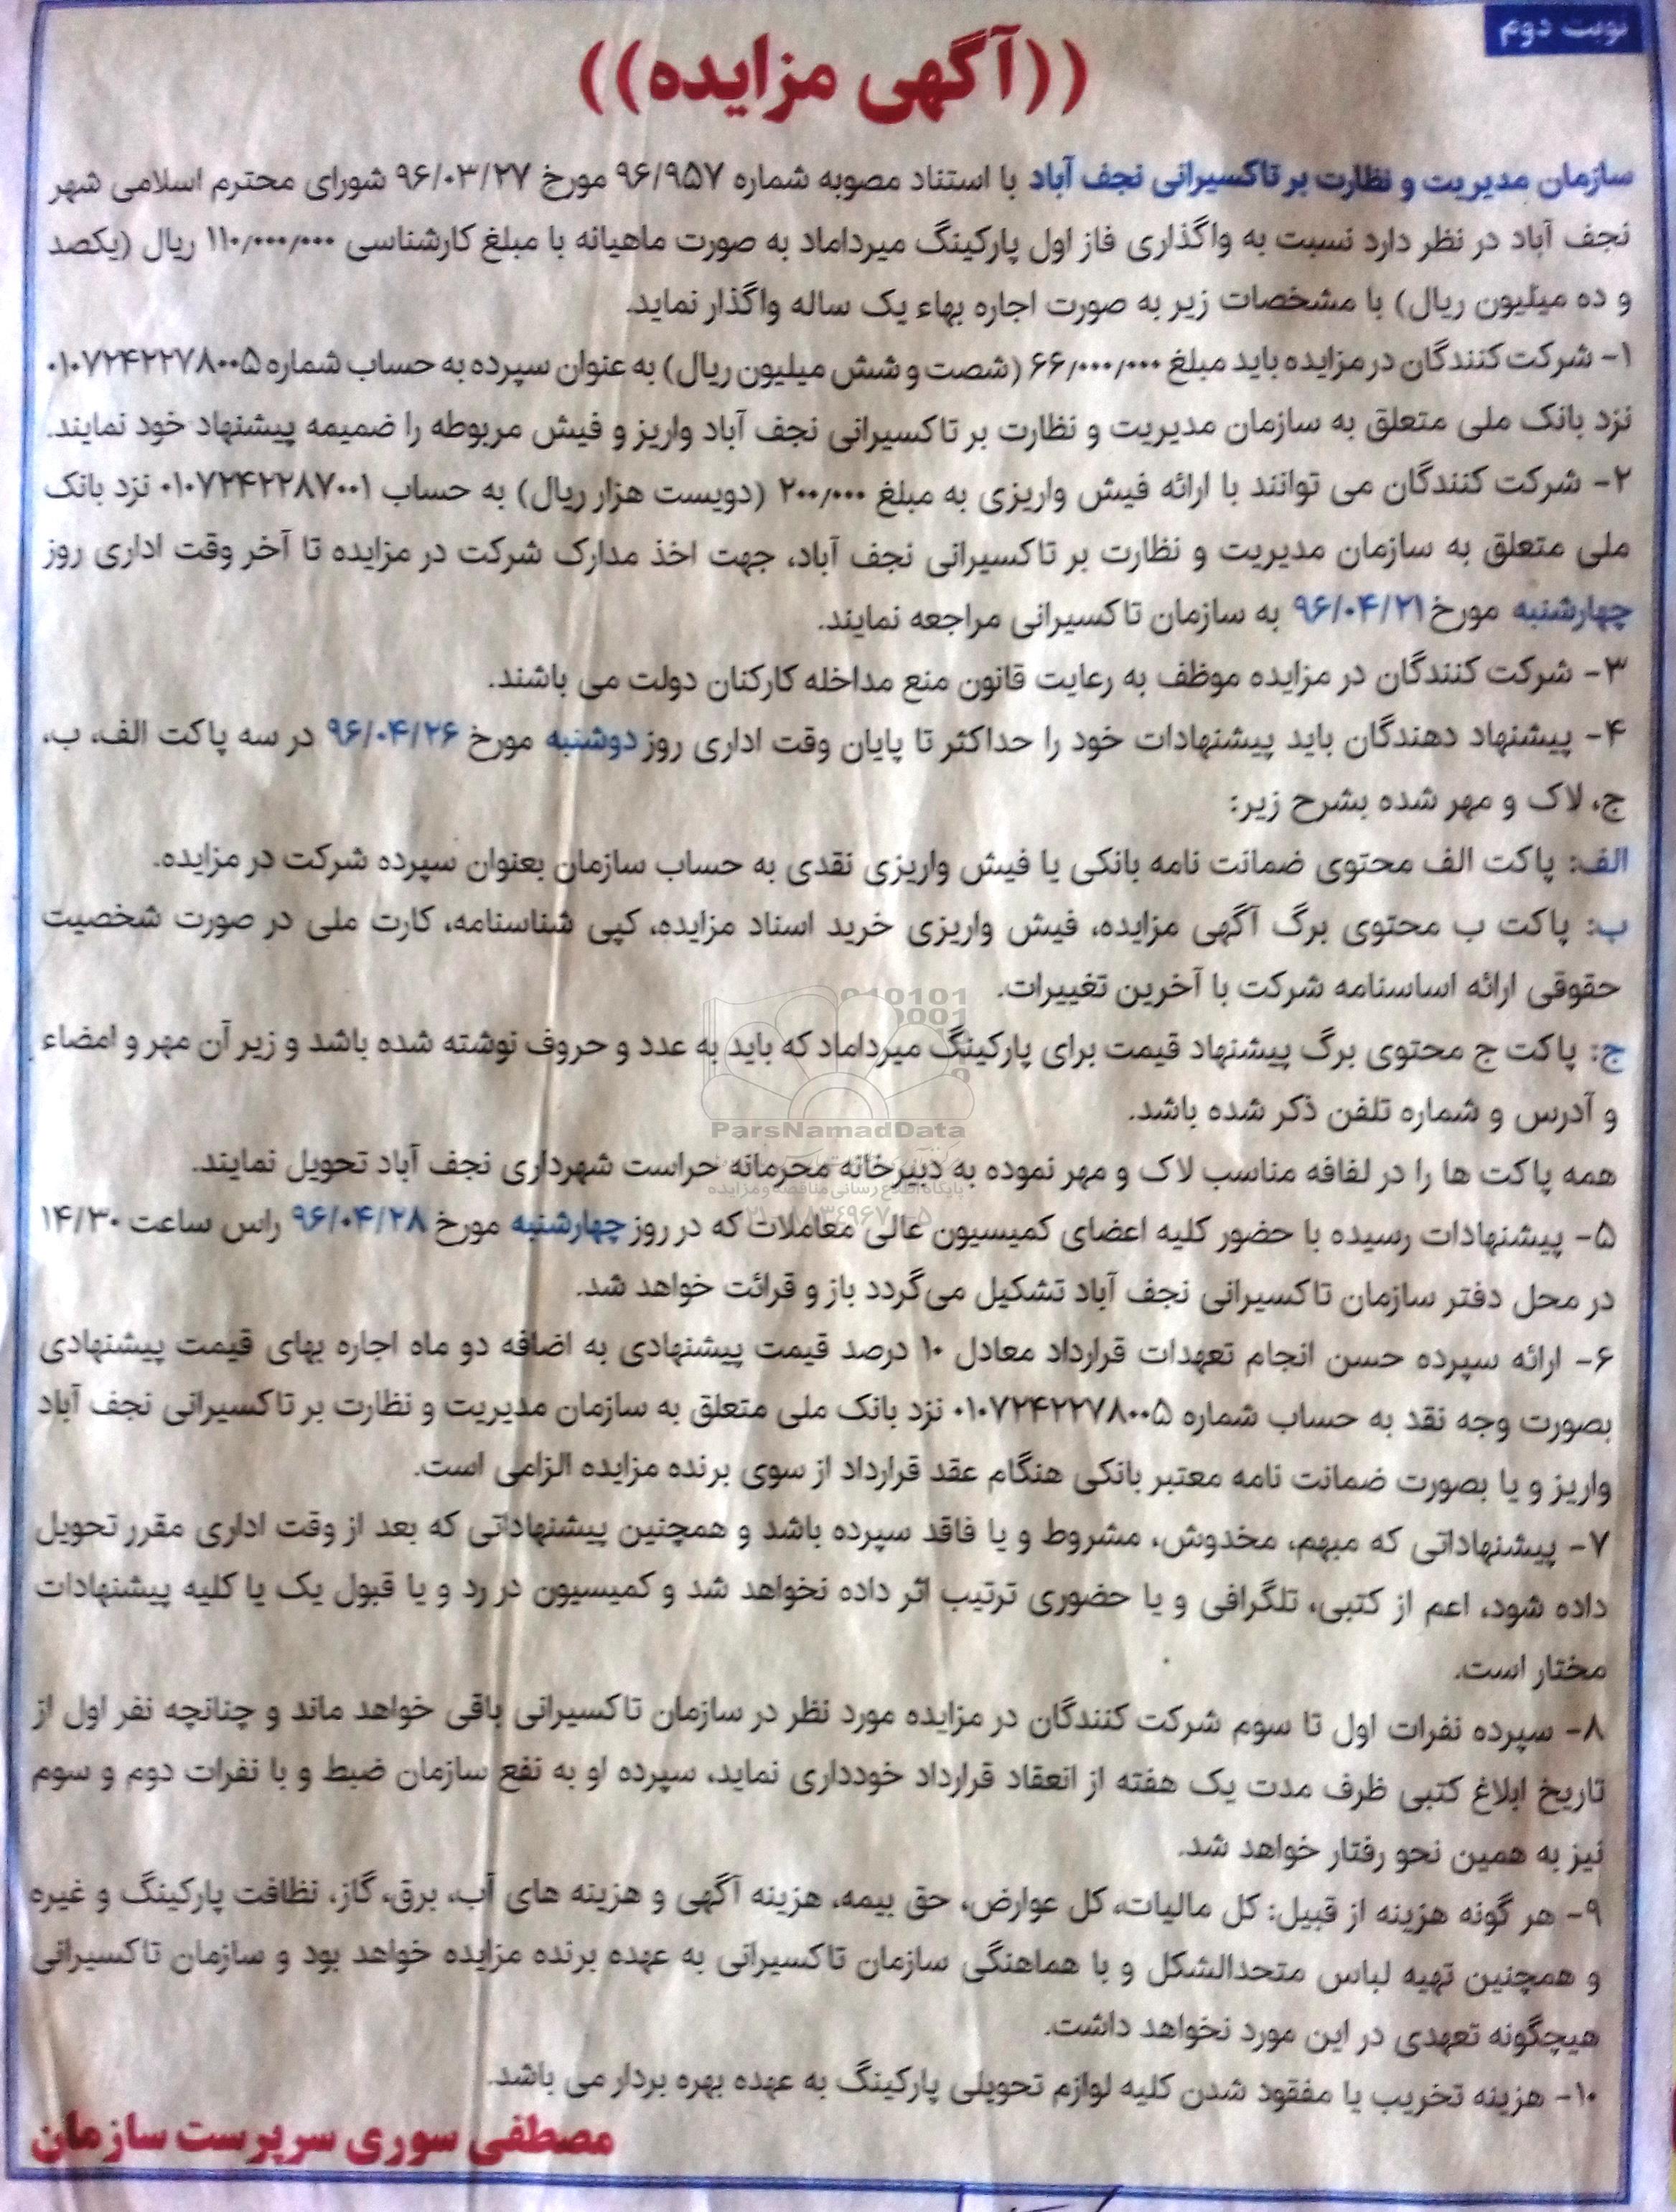 نوبت دوم
((آگهی مزایده))
سازمان مدیریت و نظارت بر تاکسیرانی نجف آباد با استناد مصوبه شماره ۹۶/۹۵۷ مورخ ۹۶/۰۳/۲۷ شورای محترم اسلامی شهر
نجف آباد در نظر دارد نسبت به واگذاری فاز اول پارکینگ میرداماد به صورت ماهیانه با مبلغ کارشناسی ۱۱۰/۰۰۰/۰۰۰ ریال (یکصد
و ده میلیون ریال) با مشخصات زیر به صورت اجاره بهاء یک ساله واگذار نماید.
۱- شرکت کنندگان در مزایده باید مبلغ ۶۶/۰۰۰/۰۰۰ (شصت و شش میلیون ریال) به عنوان سپرده به حساب شماره ۰۱۰۷۲۴۲۲۷۸۰۰۵
نزد بانک ملی متعلق به سازمان مدیریت و نظارت بر تاکسیرانی نجف آباد واریز و فیش مربوطه را ضمیمه پیشنهاد خود نمایند.
۲- شرکت کنندگان می توانند با ارائه فیش واریزی به مبلغ ۲۰۰/۰۰۰ (دویست هزار ریال) به حساب ۰۱۰۷۲۴۲۲۸۷۰۰۱ نزد بانک
ملی متعلق به سازمان مدیریت و نظارت بر تاکسیرانی نجف آباد، جهت اخذ مدارک شرکت در مزایده تا آخر وقت اداری روز
چهارشنبه مورخ ۹۶/۰۴/۲۱ به سازمان تاکسیرانی مراجعه نمایند.
۳- شرکت کنندگان در مزایده موظف به رعایت قانون منع مداخله کارکنان دولت می باشند.
۴- پیشنهاد دهندگان باید پیشنهادات خود را حداکثر تا پایان وقت اداری روز دوشنبه مورخ ۹۶/۰۴/۲۶ در سه پاکت الف، ب،
ج، لاک و مهر شده بشرح زیر:
الف: پاکت الف محتوی ضمانت نامه بانکی یا فیش واریزی نقدی به حساب سازمان بعنوان سپرده شرکت در مزایده.
ب: پاکت ب محتوی برگ آگهی مزایده، فیش واریزی خرید اسناد مزایده، کپی شناسنامه، کارت ملی در صورت شخصیت
حقوقی ارائه اساسنامه شرکت با آخرین تغییرات.
ج: پاکت ج محتوی برگ پیشنهاد قیمت برای پارکینگ میرداماد که باید به عدد و حروف نوشته شده باشد و زیر آن مهر و امضاء
و آدرس و شماره تلفن ذکر شده باشد.
ParsNamadData
همه پاکت ها را در لفافه مناسب لاک و مهر نموده به دبیرخانه محرمانه حراست شهرداری نجف آباد تحویل نمایند.
پایگاه اطلاع رسانی مناقصه و مزایده
۵- پیشنهادات رسیده با حضور کلیه اعضای کمیسیون عالی معاملات که در روز چهارشنبه مورخ ۹۶/۰۴/۲۸ راس ساعت ۱۴/۳۰
در محل دفتر سازمان تاکسیرانی نجف آباد تشکیل می‌گردد باز و قرائت خواهد شد.
۶- ارائه سپرده حسن انجام تعهدات قرارداد معادل ۱۰ درصد قیمت پیشنهادی به اضافه دو ماه اجاره بهای قیمت پیشنهادی
بصورت وجه نقد به حساب شماره ۰۱۰۷۲۴۲۲۷۸۰۰۵ نزد بانک ملی متعلق به سازمان مدیریت و نظارت بر تاکسیرانی نجف آباد
واریز و یا بصورت ضمانت نامه معتبر بانکی هنگام عقد قرارداد از سوی برنده مزایده الزامی است.
۷- پیشنهاداتی که مبهم، مخدوش، مشروط و یا فاقد سپرده باشد و همچنین پیشنهاداتی که بعد از وقت اداری مقرر تحویل
داده شود، اعم از کتبی، تلگرافی و یا حضوری ترتیب اثر داده نخواهد شد و کمیسیون در رد و یا قبول یک یا کلیه پیشنهادات
مختار است.
۸- سپرده نفرات اول تا سوم شرکت کنندگان در مزایده مورد نظر در سازمان تاکسیرانی باقی خواهد ماند و چنانچه نفر اول از
تاریخ ابلاغ کتبی ظرف مدت یک هفته از انعقاد قرارداد خودداری نماید، سپرده او به نفع سازمان ضبط و با نفرات دوم و سوم
نیز به همین نحو رفتار خواهد شد.
۹- هر گونه هزینه از قبیل: کل مالیات، کل عوارض، حق بیمه، هزینه آگهی و هزینه های آب، برق، گاز، نظافت پارکینگ و غیره
و همچنین تهیه لباس متحدالشکل و با هماهنگی سازمان تاکسیرانی به عهده برنده مزایده خواهد بود و سازمان تاکسیرانی
هیچگونه تعهدی در این مورد نخواهد داشت.
۱۰- هزینه تخریب یا مفقود شدن کلیه لوازم تحویلی پارکینگ به عهده بهره بردار می باشد.
مصطفی سوری سرپرست سازمان